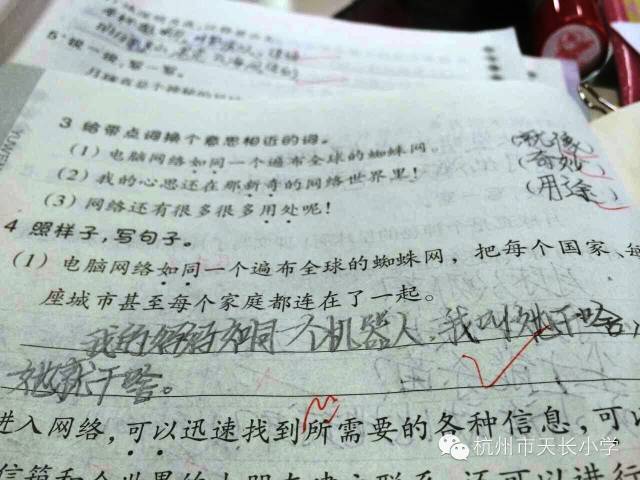 5·读一读,写一写。
3 给带点词换个意思相近的词。
(1) 电脑网络如同一个遍布全球的蜘蛛网。 (就像)
(2) 我的心思还在那新奇的网络世界里! (奇妙)
(3) 网络还有很多很多用处呢! (用途)
4 照样子,写句子。
(1) 电脑网络如同一个遍布全球的蜘蛛网,把每个国家、每
座城市甚至每个家庭都连在了一起。
我的妈妈如同一个机器人,我叫她干啥,
她就干啥。
进入网络,可以迅速找到所需要的各种信息,可以
还可以进行
杭州市天长小学